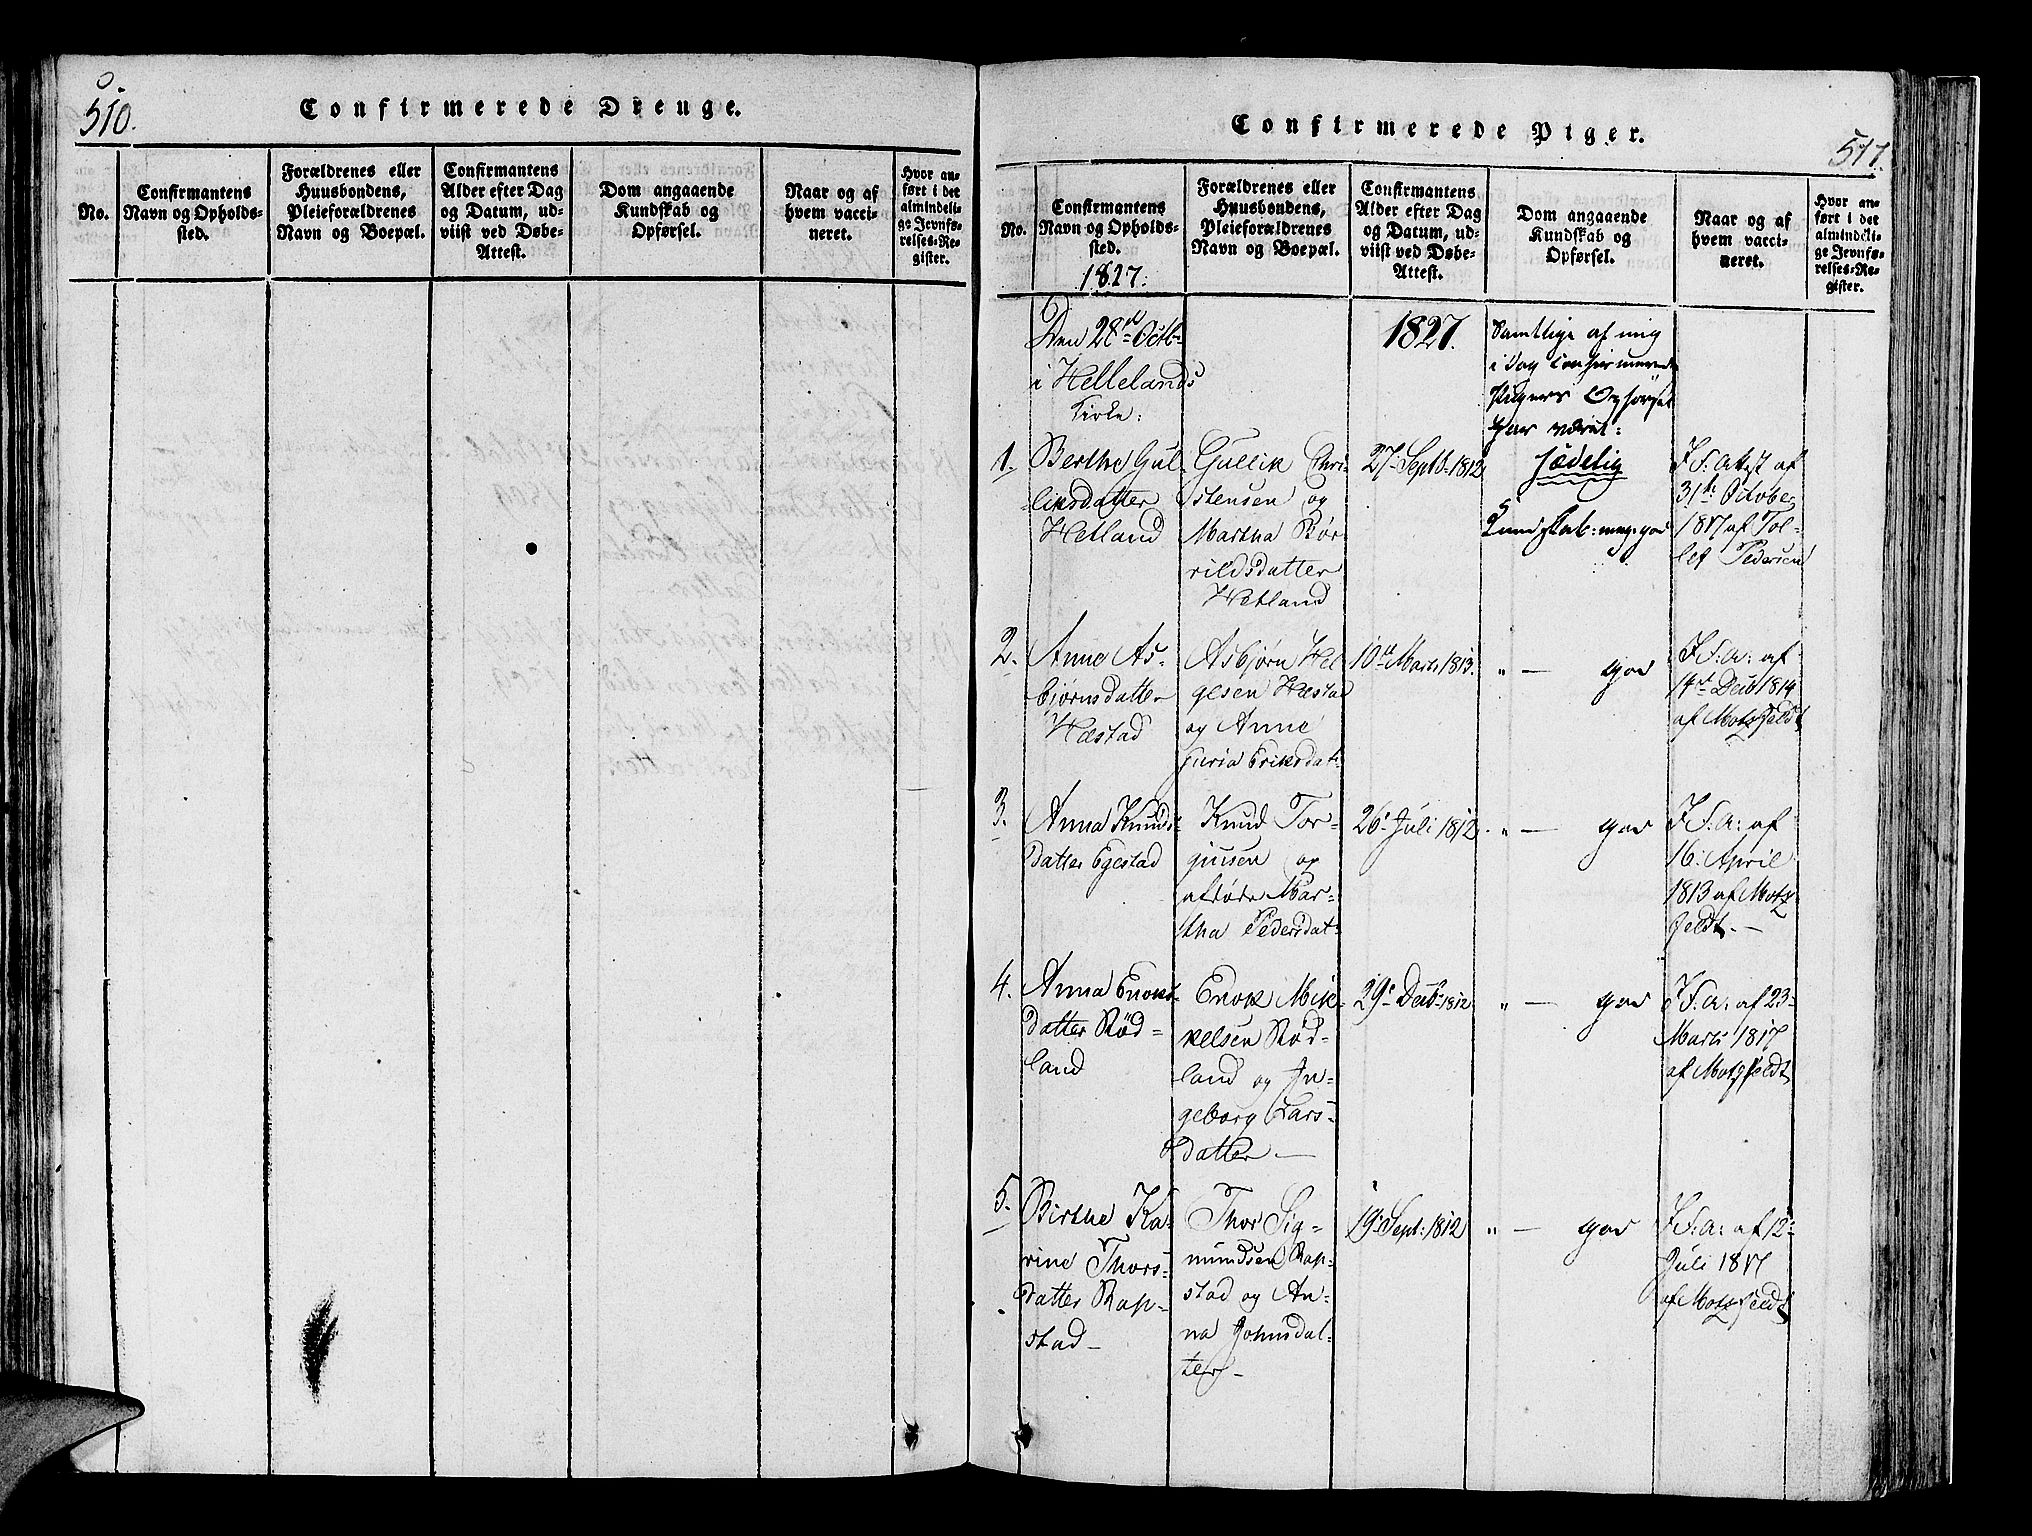 510.
Confirmerede Drenge.
No.
Confirmantens
Navn og Opholds-
sted.
Forældrenes eller
Huusbondens,
Pleieforældrenes
Navn og Boepæl.
Confirmantens
Alder efter Dag
og Datum, ud-
viist ved Døbe-
Attest.
Dom angaaende
Kundskab og
Opførsel.
Naar og af
hvem vacci-
neret.
Hvor an-
ført i det
almindeli-
ge Jevnfø-
relses-Re-
gister.
Confirmerede Piger.
511.
No.
Confirmantens
Navn og Opholds-
sted.
1827.
Forældrenes eller
Huusbondens,
Pleieforældrenes
Navn og Boepæl.
Confirmantens
Alder efter Dag
og Datum, ud-
viist ved Døbe-
Attest.
Dom angaaende
Kundskab og
Opførsel.
Naar og af
hvem vacci-
neret.
Hvor an-
ført i det
almindeli-
ge Jevnfø-
relses-Re-
gister.
Den 28de Octb-
i Hellelands
Kirke:
1827.
Samtlige af mig
i Dag confirmerede
Pigers Opførsel
har været:
1.
Berthe Gul-
liksdatter
Hetland
Gullik Chri-
stensen og
Martha Bør-
rildsdatter
Hetland
27. Septb. 1812
sædelig
Kundskab: meg: god
I S: Attest af
31te Octobe
1817 af Tol-
lef Pedersen
2.
Anne As-
bjørnsdatter
Hæstad
Asbjørn Hel
gesen Hæstad
og Anne
Juria Eriksdat:
10de Marts 1813.
" — god
I S: a: af
14de Decb 1814
af Motzfeldt
3.
Anna Knuds-
datter Egestad
Knud Tor-
gjusen og
afdøde Mar-
tha Pedersdat:
26: Juli 1812
" — god
I S: a: af
16: April
1813 af Motz
feldt. —
4.
Anna Enoks-
datter Rød-
land
Enok Mik-
kelsen Rød-
land og In-
geborg Lars-
datter —
29: Decbr 1812
" — god
I S: a: af 23-
Marts 1817
af Motzfeldt
5.
Birthe Ka-
rine Thors-
datter Rap-
stad —
Thor Sig-
mundsen Rap-
stad og An-
na Johnsdat-
ter —
19: Sept: 1812
" — god
I S: a: af 12-
Juli 1817
af Motzfeldt